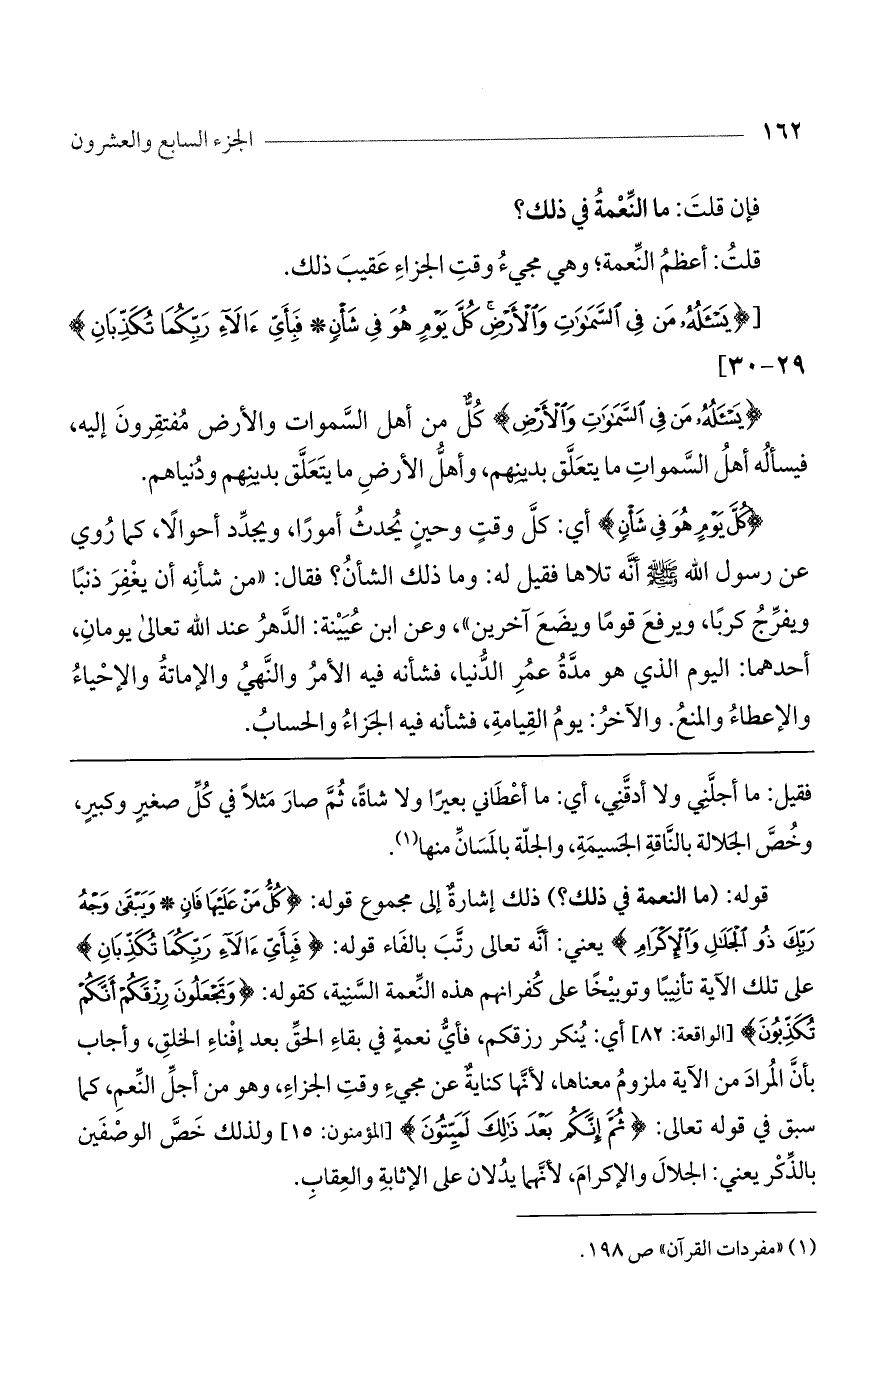 ١٦٢ الجزء السابع والعشرون
فإن قلتَ: ما النِّعْمةُ في ذلك؟
قلتُ: أعظمُ النِّعمة؛ وهي مجيءُ وقتِ الجزاءِ عَقيبَ ذلك.
[﴿يَسْـَٔلُهُۥ مَن فِى ٱلسَّمَـٰوَٰتِ وَٱلْأَرْضِ ۚ كُلَّ يَوْمٍ هُوَ فِى شَأْنٍ * فَبِأَىِّ ءَالَآءِ رَبِّكُمَا تُكَذِّبَانِ﴾
٢٩-٣٠]
﴿يَسْـَٔلُهُۥ مَن فِى ٱلسَّمَـٰوَٰتِ وَٱلْأَرْضِ﴾ كُلٌّ من أهل السَّموات والأرض مُفتقِرونَ إليه،
فيسألُه أهلُ السَّمواتِ ما يتعلَّق بدينِهم، وأهلُ الأرضِ ما يتَعَلَّق بدينِهم ودُنياهم.
﴿كُلَّ يَوْمٍ هُوَ فِى شَأْنٍ﴾ أي: كلَّ وقتٍ وحينٍ يُحدثُ أمورًا، ويجدِّد أحوالًا، كما رُوي
عن رسول الله ﷺ أنَّه تلاها فقيل له: وما ذلك الشأنُ؟ فقال: «من شأنِه أن يغْفِرَ ذنبًا
ويفرِّجُ كربًا، ويرفعَ قومًا ويضَعَ آخرين»، وعن ابن عُيَيْنة: الدَّهرُ عند الله تعالىٰ يومانِ،
أحدهما: اليوم الذي هو مدَّةُ عمُرِ الدُّنيا، فشأنه فيه الأمرُ والنَّهيُ والإماتةُ والإحْياءُ
والإعطاءُ والمنعُ. والآخرُ: يومُ القِيامةِ، فشأنه فيه الجَزاءُ والحسابُ.
فقيل: ما أجلَّنِي ولا أدقَّنِي، أي: ما أعْطَاني بعيرًا ولا شاةً، ثُمَّ صارَ مَثلاً في كُلِّ صغيرٍ وكبيرٍ،
وخُصَّ الجَلالة بالنَّاقةِ الجَسيمَةِ، والجلّة بالمَسَانِّ منها(١).
قوله: (ما النعمة في ذلك؟) ذلك إشارةٌ إلى مجموع قوله: ﴿كُلُّ مَنْ عَلَيْهَا فَانٍ * وَيَبْقَىٰ وَجْهُ
رَبِّكَ ذُو ٱلْجَلَـٰلِ وَٱلْإِكْرَامِ﴾ يعني: أنَّه تعالى رتَّبَ بالفَاء قوله: ﴿فَبِأَىِّ ءَالَآءِ رَبِّكُمَا تُكَذِّبَانِ﴾
على تلك الآية تأنِيبًا وتوبيْخًا على كُفرانهم هذه النِّعمة السَّنِية، كقوله: ﴿وَتَجْعَلُونَ رِزْقَكُمْ أَنَّكُمْ
تُكَذِّبُونَ﴾ [الواقعة: ٨٢] أي: يُنكر رزقكم، فأيُّ نعمةٍ في بقاءِ الحقِّ بعد إفْناءِ الخلقِ، وأجاب
بأنَّ المُرادَ من الآية ملزومُ معناها، لأنَّها كنايةٌ عن مجيءِ وقتِ الجزاءِ، وهو من أجلِّ النِّعمِ، كما
سبق في قوله تعالى: ﴿ثُمَّ إِنَّكُم بَعْدَ ذَٰلِكَ لَمَيِّتُونَ﴾ [المؤمنون: ١٥] ولذلك خَصَّ الوصْفَين
بالذِّكْر يعني: الجلالَ والإكرامَ، لأنَّهما يدُلان على الإثابةِ والعِقابِ.
(١) «مفردات القرآن» ص ١٩٨.